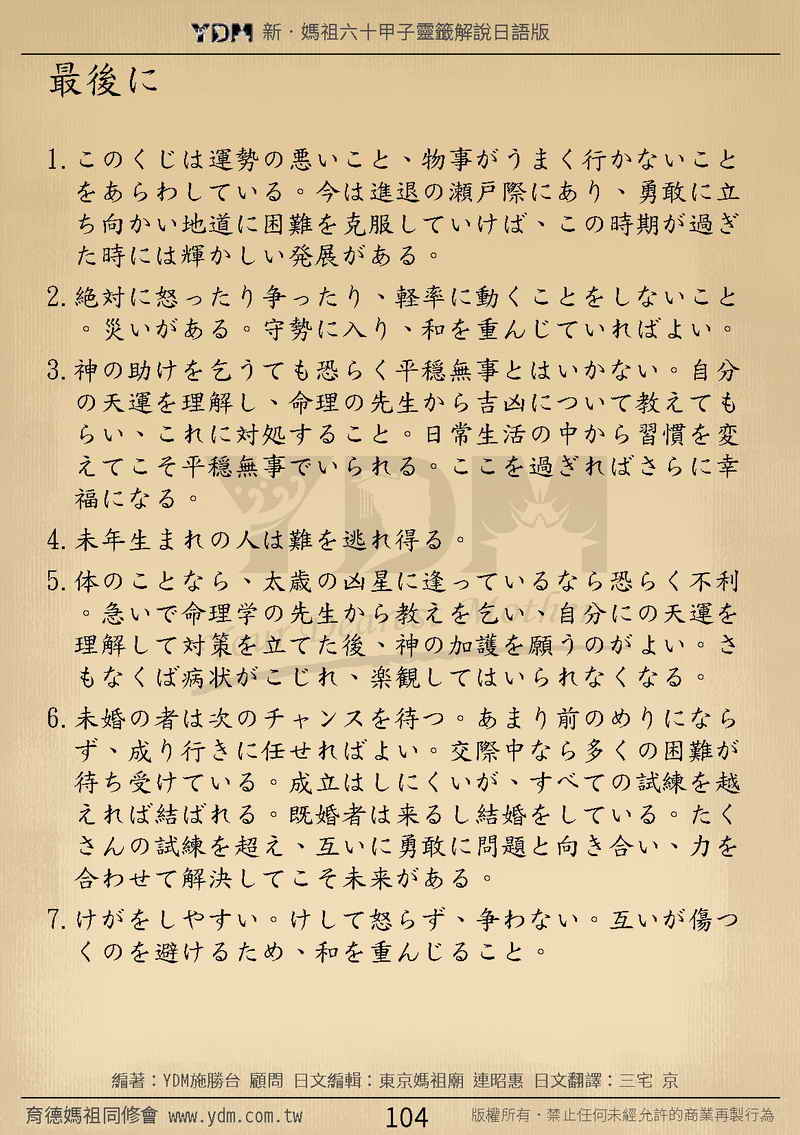 YDM 新．媽祖六十甲子靈籤解說日語版
最後に
1. このくじは運勢の悪いこと、物事がうまく行かないこと
をあらわしている。今は進退の瀬戸際にあり、勇敢に立
ち向かい地道に困難を克服していけば、この時期が過ぎ
た時には輝かしい発展がある。
2. 絶対に怒ったり争ったり、軽率に動くことをしないこと
。災いがある。守勢に入り、和を重んじていればよい。
3. 神の助けを乞うても恐らく平穏無事とはいかない。自分
の天運を理解し、命理の先生から吉凶について教えても
らい、これに対処すること。日常生活の中から習慣を変
えてこそ平穏無事でいられる。ここを過ぎればさらに幸
福になる。
4. 未年生まれの人は難を逃れ得る。
5. 体のことなら、太歳の凶星に逢っているなら恐らく不利
。急いで命理学の先生から教えを乞い、自分にの天運を
理解して対策を立てた後、神の加護を願うのがよい。さ
もなくば病状がこじれ、楽観してはいられなくなる。
6. 未婚の者は次のチャンスを待つ。あまり前のめりになら
ず、成り行きに任せればよい。交際中なら多くの困難が
待ち受けている。成立はしにくいが、すべての試練を越
えれば結ばれる。既婚者は来るし結婚をしている。たく
さんの試練を超え、互いに勇敢に問題と向き合い、力を
合わせて解決してこそ未来がある。
7. けがをしやすい。けして怒らず、争わない。互いが傷つ
くのを避けるため、和を重んじること。
編著：YDM施勝台 顧問 日文編輯：東京媽祖廟 連昭惠 日文翻譯：三宅 京
育德媽祖同修會 www.ydm.com.tw 104 版權所有．禁止任何未經允許的商業再製行為